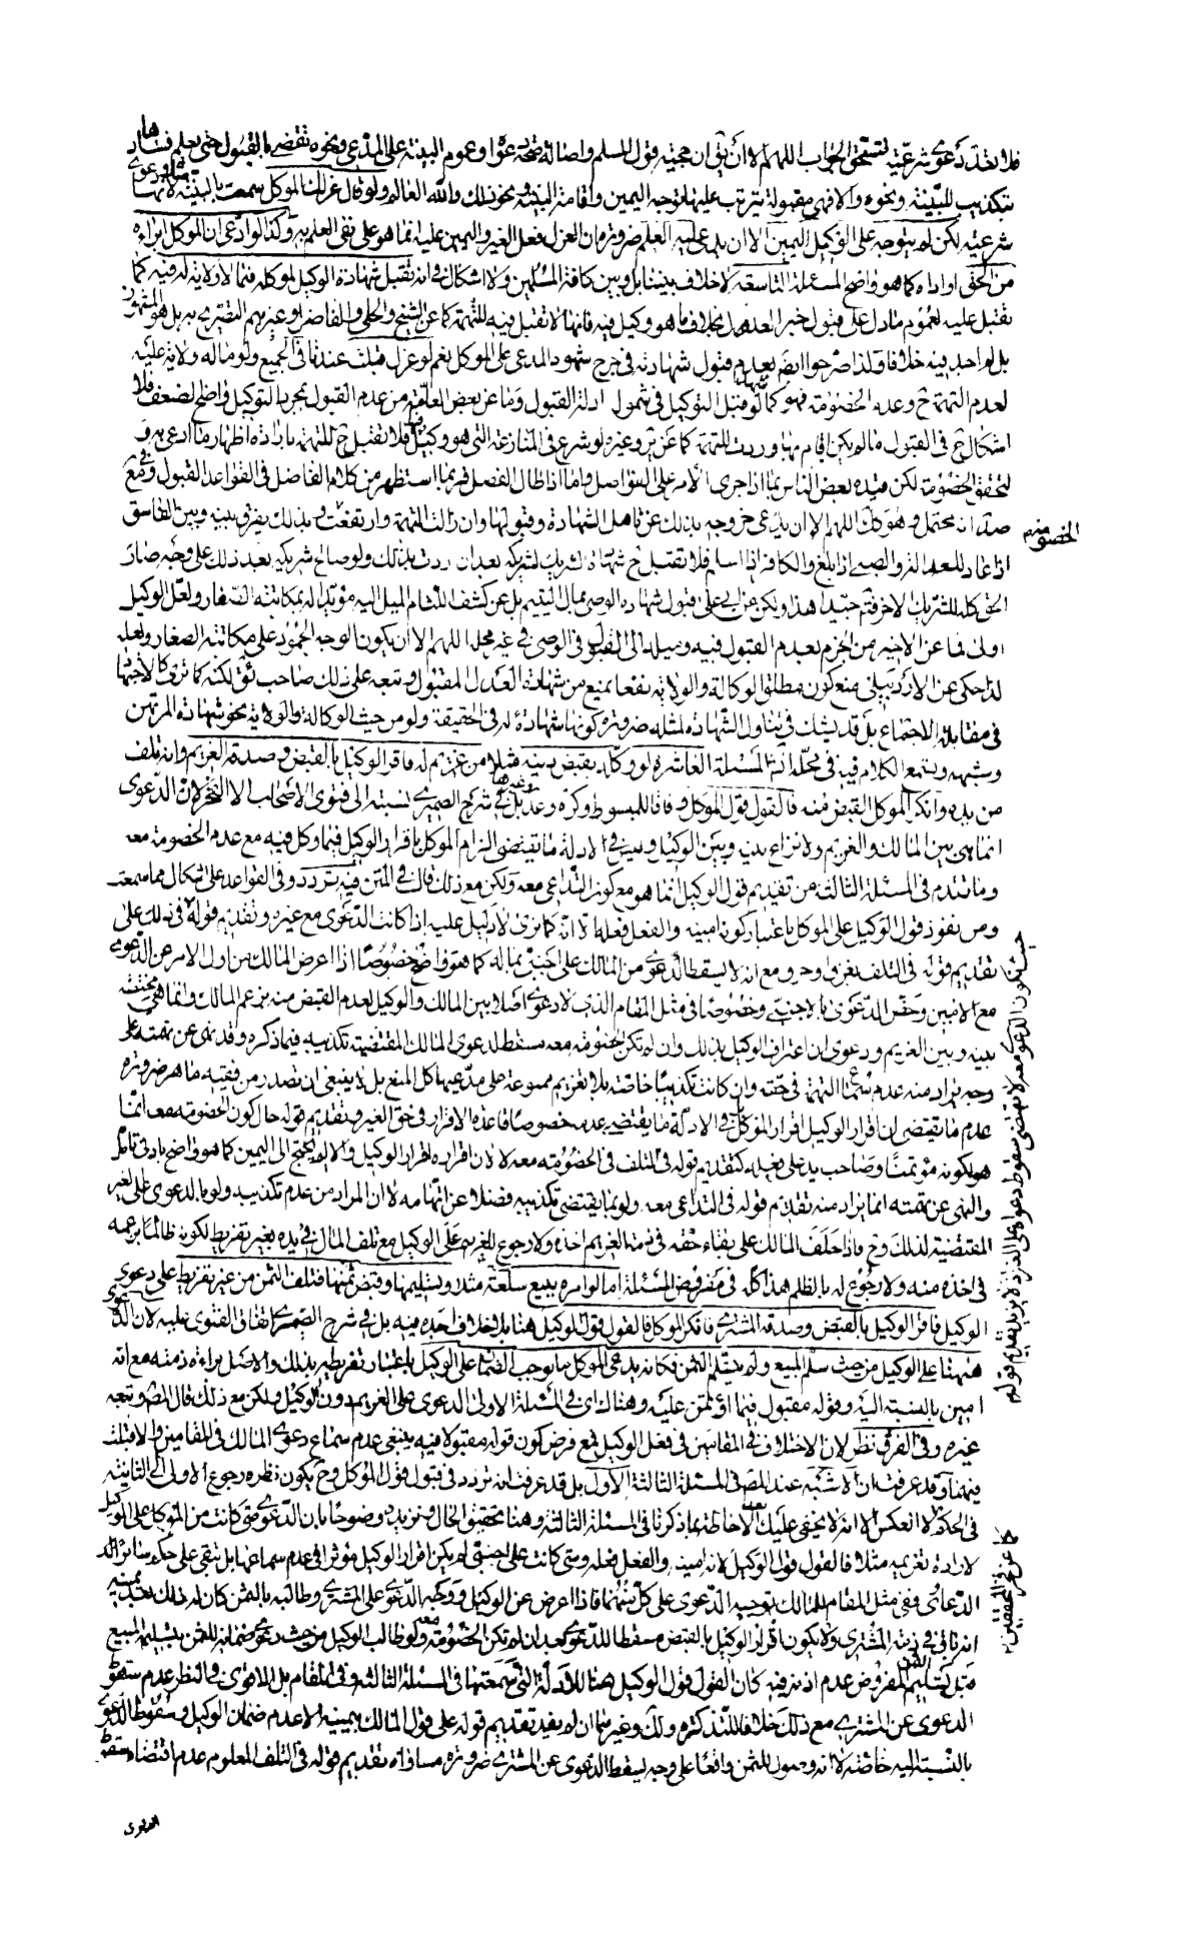 فلا تعد دعوى شرعية تستحق الجواب اللهم الا أن يق ان حجية قول المسلم واصالة صحة دعواه وعموم البينة على المدعي ونحوه تقضي بالقبول حتى يعلم فسادها
بتكذيب للبينة ونحوه والا فهي مقبولة يترتب عليها توجه اليمين واقامة البينة ونحو ذلك والله العالم ولو قال عزلك الموكل سمعت بالبينة لانها دعوى
شرعية لكن لم يتوجه على الوكيل اليمين الا ان يدعي عليه العلم ضرورة ان العزل فعل الغير واليمين عليه انما هو على نفي العلم به وكذا لو ادعى ان الموكل ابراءه
من الحق او اداه كما هو واضح المسئلة التاسعة لا خلاف بيننا بل وبين كافة المسلمين ولا اشكال في انه تقبل شهادة الوكيل لموكله فيما لا ولاية له فيه كما
تقبل عليه لعموم ما دل على قبول خبر العدل بخلاف ما هو وكيل فيه فانها لا تقبل فيه للتهمة كما عن الشيخ والحلي والفاضل وغيرهم التصريح به بل هو المشهور
بل لم اجد فيه خلافا ولذا صرحوا ايضم بعدم قبول شهادته في جرح شهود المدعي على الموكل نعم لو عزل قبلت عندنا في الجميع ولو ماله ولاية عليه
لعدم التهمة ح وعدم الخصومة فهو كما لو قبل التوكيل في شمول ادلة القبول وما عن بعض العامة من عدم القبول بمجرد التوكيل واضح الضعف فلا
اشكال ح في القبول ما لم يكن اقام بها وردت للتهمة كما عن كره وغيره او شرع في المنازعة التي هو وكيل فيها فلا تقبل ح للتهمة بارادة اظهار ما ادعى به و
لتحقق الخصومة لكن قيده بعض الناس بما اذا جرى الأمر على التواصل واما اذا طال الفصل فربما استظهر من كلام الفاضل في القواعد القبول وفي مع
صد انه محتمل وهو كك اللهم الا ان يدعى خروجه بذلك عن تاهل الشهادة وقبولها وان زالت التهمة وارتفعت وبذلك يفرق بينه وبين الفاسق
الخصومة منه
اذا عاد للعدالة والصبي اذا بلغ والكافر اذا اسلم فلا تقبل ح شهادة الشريك لشريكه بعد ان ردت بذلك ولو صالح شريكه بعد ذلك على وجه صار
الحق كله للشريك الاخر فتم جيدا هذا ولكن عن ابي علي قبول شهادة الوصي بمال اليتيم بل عن كشف اللثام الميل اليه مؤيدا له بمكاتبة الصفار ولعل الوكيل
اولى فما عن الاخير من الجزم بعدم القبول فيه وميله الى القبول في الوصي في غير محله اللهم الا ان يكون الوجه الجمود على مكاتبة الصفار ولعله
لذا حكى عن الاردبيلي منع كون مطلق الوكالة والولاية نفعا يمنع من شهادة العدل المقبول وتبعه على ذلك صاحب ئق لكنه كما ترى كالاجتهاد
في مقابلة الاجماع بل قد يشك في تناول الشهادة لمثله ضرورة كونها شهادة له في الحقيقة ولو من حيث الوكالة والولاية نحو شهادة المرتهن
وشبهه وتسمع الكلام فيه في محله انش المسئلة العاشرة لو وكله بقبض دينه مثلا من غريم له فاقر الوكيل بالقبض وصدقه الغريم وانه تلف
من يده وانكر الموكل القبض منه فالقول قول الموكل وفاقا للمبسوط وكره وعد وغيرها بل في شرح الصيمري نسبته الى فتوى الاصحاب الا الفخر لان الدعوى
انما هي بين المالك والغريم ولا نزاع بينه وبين الوكيل وليس في الادلة ما يقتضي الزام الموكل باقرار الوكيل فيما وكل فيه مع عدم الخصومة معه
وما تقدم في المسئلة الثالثة من تقديم قول الوكيل انما هو مع كون التداعي معه ولكن مع ذلك قال في المتن فيه تردد وفي القواعد على اشكال مما سمعت
ومن نفوذ قول الوكيل على الموكل باعتبار كونه امينه والفعل فعله الا انه كما ترى لا دليل عليه اذا كانت الدعوى مع غيره وتقديم قوله في ذلك على
تقديم قوله في التلف بغير اوجه ومع انه لا يسقط الدعوى من المالك على اجنبي بماله كما هو واضح خصوصا اذا اعرض المالك من اول الامر عن الدعوى
مع الامين وحقق الدعوى بالاجنبي وخصوصا في مثل المقام الذي لا دعوى اصلا بين المالك والوكيل لعدم القبض منه بزعم المالك وانما هي مختصة
بينه وبين الغريم ودعوى ان اعتراف الوكيل بذلك وان لم تكن خصومة معه مسقط لدعوى المالك المقتضية تكذيبه فيما ذكره وقد نهى عن تهمته على
وجه يراد منه عدم سماع التهمة في حقه وان كانت تكذيبا خاصة بالغريم ممنوعة على مدعيها كل المنع بل لا ينبغي ان تصدر من فقيه ماهر ضرورة
عدم ما يقتضي ان اقرار الوكيل اقرار الموكل بل في الادلة ما يقتضي عدمه خصوصا قاعدة الاقرار في حق الغير وتقديم قوله حال كون الخصومة معه انما
هو لكونه مؤتمنا وصاحب يد على فعله كتقديم قوله في التلف في الخصومة معه لا لان اقراره اقرار الوكيل والا لم يحتج الى اليمين كما هو واضح بادنى تامل
والنهي عن تهمته انما يراد منه تقديم قوله في التداعي معه ولو بما يقتضي تكذيبه فضلا عن اتهامه لا ان المراد من عدم تكذيبه ولو بالدعوى على الغير
المقتضية لذلك وح فاذا حلف المالك على بقاء حقه في ذمة الغريم اخذه ولا رجوع للغريم على الوكيل مع تلف المال في يده بغير تفريط لكونه ظالما بزعمه
في اخذه منه ولا رجوع له بالظلم هذا كله في مفروض المسئلة اما لو امره ببيع سلعة مثلا وتسليمها وقبض ثمنها فتلف الثمن من غير تفريط على دعوى
الوكيل فاقر الوكيل بالقبض وصدقه المشتري فانكر الموكل فالقول قول الوكيل هنا بلا خلاف اجده فيه بل في شرح الصيمري اتفاق الفتوى عليه لان الدعوى
هيهنا على الوكيل من حيث سلم المبيع ولم يتسلم الثمن فكانه يدعي الموكل ما يوجب الضمان على الوكيل باعتبار تفريطه بذلك والاصل براءة ذمته مع انه
امين بالنسبة اليه وقوله مقبول فيما اؤتمن عليه وهناك اي في المسئلة الاولى الدعوى على الغريم دون الوكيل ولكن مع ذلك قال المصنف وتبعه
غيره وفي الفرق نظر لان الاختلاف في المقامين في فعل الوكيل فمع فرض كون قوله مقبولا فيه ينبغي عدم سماع دعوى المالك في المقامين والا قبلت
فيهما وقد عرفت ان الاشبه عند المص في المسئلة الثالثة الأول بل قد عرفت انه تردد في قبول قول الموكل وح يكون نظره رجوع الاولى الى الثانية
في الحكم لا العكس الا انه لا يخفى عليك بعد الاحاطة بما ذكرنا في المسئلة الثالثة وهنا تحقيق الحال ونزيد وضوحا بان الدعوى متى كانت من الموكل على الوكيل
لارادة تغريمه مثلا فالقول قول الوكيل لانه امينه والفعل فعله ومتى كانت على اجنبي لم يكن اقرار الوكيل مؤثرا في عدم سماعها بل تبقى على حكم سائر الد
الدعاوى وففي مثل المقام للمالك توجيه الدعوى على كل منهما فاذا اعرض عن الوكيل ووجه الدعوى على المشتري وطالبه بالثمن كان له ذلك بعد يمينه
انه باق في ذمة المشتري ولا يكون اقرار الوكيل بالقبض مسقطا للدعوى بعد ان لم تكن الخصومة معه ولو طالب الوكيل من حيث دعوى ضمانه للثمن بتسليمه المبيع
قبل تسليم الثمن المفروض عدم اذنه فيه كان القول قول الوكيل هنا للادلة التي سمعتها في المسئلة الثالثة وفي المقام بل الاقوى في النظر عدم سقوط
الدعوى عن المشتري مع ذلك خلافا للتذكرة ولك وغيرهما ان لم يفد تقديم قوله على قول المالك بيمينه الا عدم ضمان الوكيل وسقوط الدعوى
بالنسبة اليه خاصة لا انه وصول للثمن واقعا على وجه يسقط الدعوى عن المشتري ضرورة مساواة تقديم قوله في التلف المعلوم عدم اقتضاءه سقوط
حيث تكون الدعوى معه لا يقتضي سقوط دعواه على الاخر
كما عن فخر المحققين
الدعوى